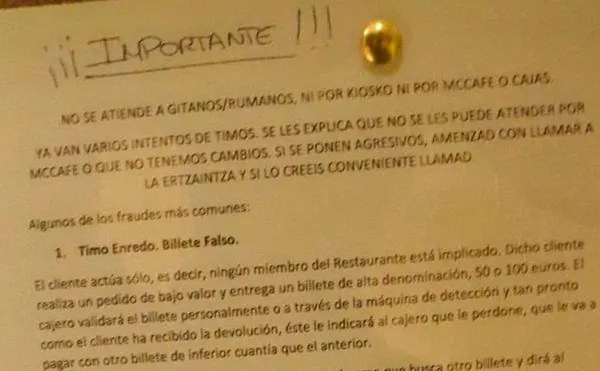 ¡¡¡ IMPORTANTE !!!
NO SE ATIENDE A GITANOS/RUMANOS, NI POR KIOSKO NI POR MCCAFE O CAJAS.
YA VAN VARIOS INTENTOS DE TIMOS. SE LES EXPLICA QUE NO SE LES PUEDE ATENDER POR
MCCAFE O QUE NO TENEMOS CAMBIOS. SI SE PONEN AGRESIVOS, AMENZAD CON LLAMAR A
LA ERTZAINTZA Y SI LO CREEIS CONVENIENTE LLAMAD.
Algunos de los fraudes más comunes:
1. Timo Enredo. Billete Falso.
El cliente actúa sólo, es decir, ningún miembro del Restaurante está implicado. Dicho cliente
realiza un pedido de bajo valor y entrega un billete de alta denominación, 50 o 100 euros. El
cajero validará el billete personalmente o a través de la máquina de detección y tan pronto
como el cliente ha recibido la devolución, éste le indicará al cajero que le perdone, que le va a
pagar con otro billete de inferior cuantía que el anterior.
que busca otro billete y dirá al